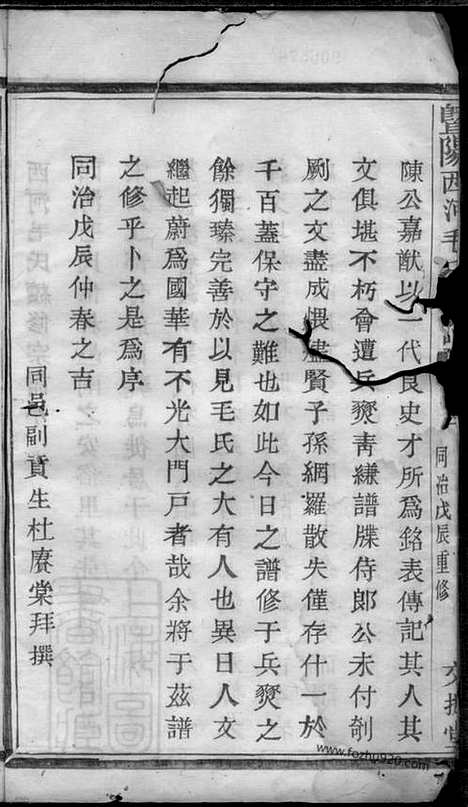 暨陽西河毛
同治戊辰重修
陳公嘉猷以一代良史才所爲銘表傳記其人其
文俱堪不朽會遭兵燹靑縑譜牒侍郞公未付剞
劂之文盡成煨燼賢子孫網羅散失僅存什一於
千百蓋保守之難也如此今日之譜修于兵燹之
餘獨臻完善於以見毛氏之大有人也異日人文
繼起蔚爲國華有不光大門戸者哉余將于茲譜
之修乎卜之是爲序
同治戊辰仲春之吉
同邑副貢生杜賡棠拜撰
www.fozhu920.com